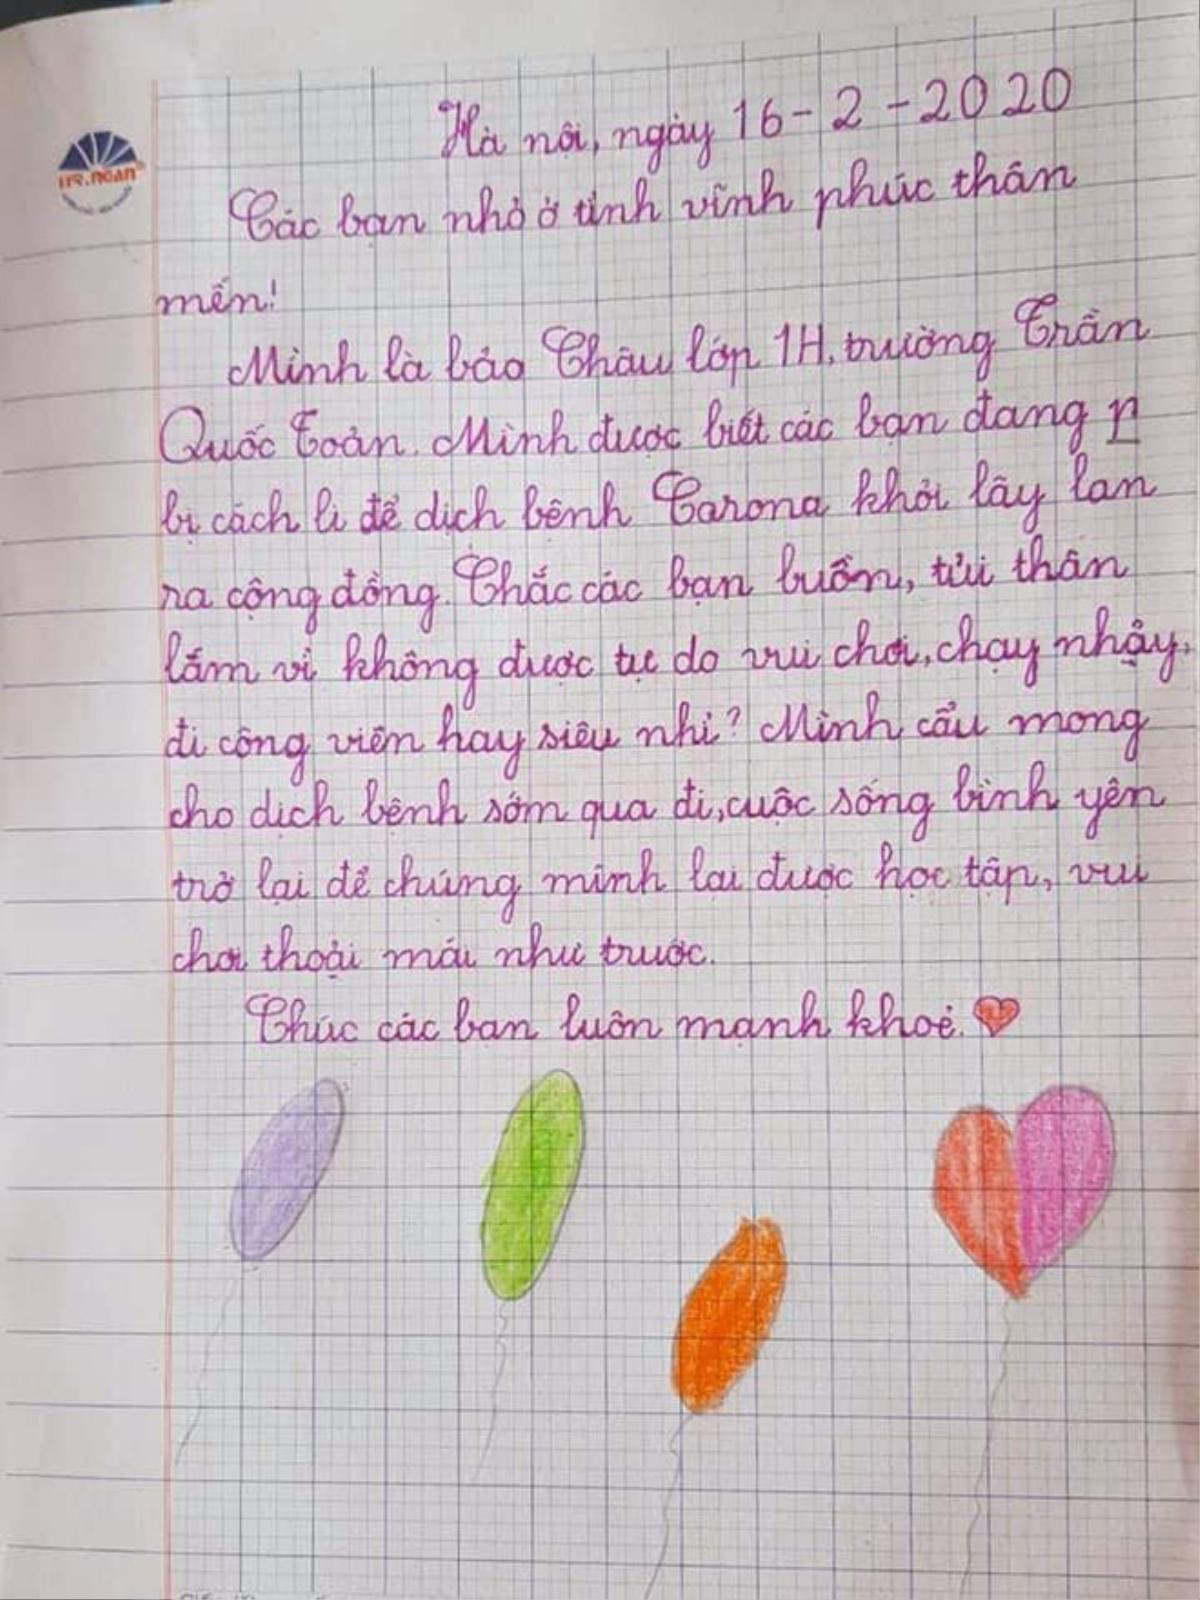 Hà nội, ngày 16-2-2020
HR.NGAN
Các bạn nhỏ ở tỉnh vĩnh phúc thân
mến!
Mình là bảo Châu lớp 1H, trường Trần
Quốc Toản. Mình được biết các bạn đang
bị cách li để dịch bệnh Carona khỏi lây lan
ra cộng đồng. Chắc các bạn buồn, tủi thân
lắm vì không được tự do vui chơi, chạy nhậy,
đi công viên hay siêu nhi? Mình cầu mong
cho dịch bệnh sớm qua đi, cuộc sống bình yên
trở lại để chúng mình lại được học tập, vui
chơi thoải mái như trước.
Chúc các bạn luôn mạnh khoẻ.